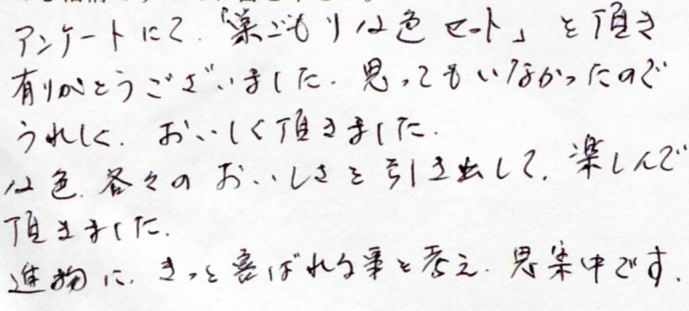 アンケートにて、「巣ごもり12色セット」を頂き
有りがとうございました。思ってもいなかったので
うれしく、おいしく頂きました。
12色、各々のおいしさを引き出して、楽しんで
頂きました。
進物に、きっと喜ばれる事と考え、思案中です。